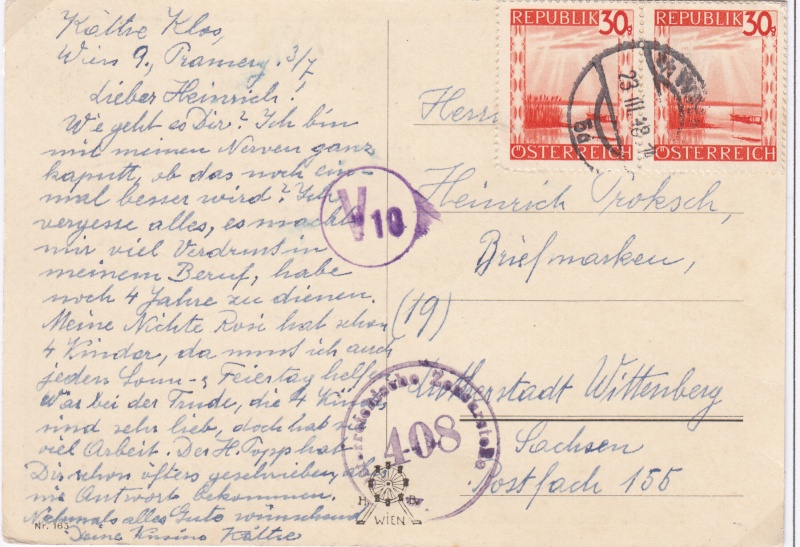 Käthe Klos,
Wien 9., Pramerg. 3/7
Lieber Heinrich!
We geht es Dir? Ich bin
mit meinen Nerven ganz
kaputt, ob das noch ein-
mal besser wird? Ich
vergesse alles, es macht
mir viel Verdruss in
meinem Beruf, habe
noch 4 Jahre zu dienen.
Meine Nichte Rosi hat schon
4 Kinder, da muss ich auch
jeden Sonn- Feiertag helfen
War bei der Trude, die 4 Kinder
sind sehr lieb, doch hat sie
viel Arbeit. Der H. Popp hat
Dir schon öfters geschrieben,
nie Antwort bekommen.
Nochmals alles Gute wünschend
Deine Kusine Käthe
Nr. 163
REPUBLIK 30g
ÖSTERREICH
REPUBLIK 30g
ÖSTERREICH
23 III 48
56
V 10
Herrn
Heinrich Proksch,
Briefmarken,
(19)
Lutherstadt Wittenberg
Sachsen
Postfach 155
Österreichische Zensurstelle
408
H. B.
WIEN